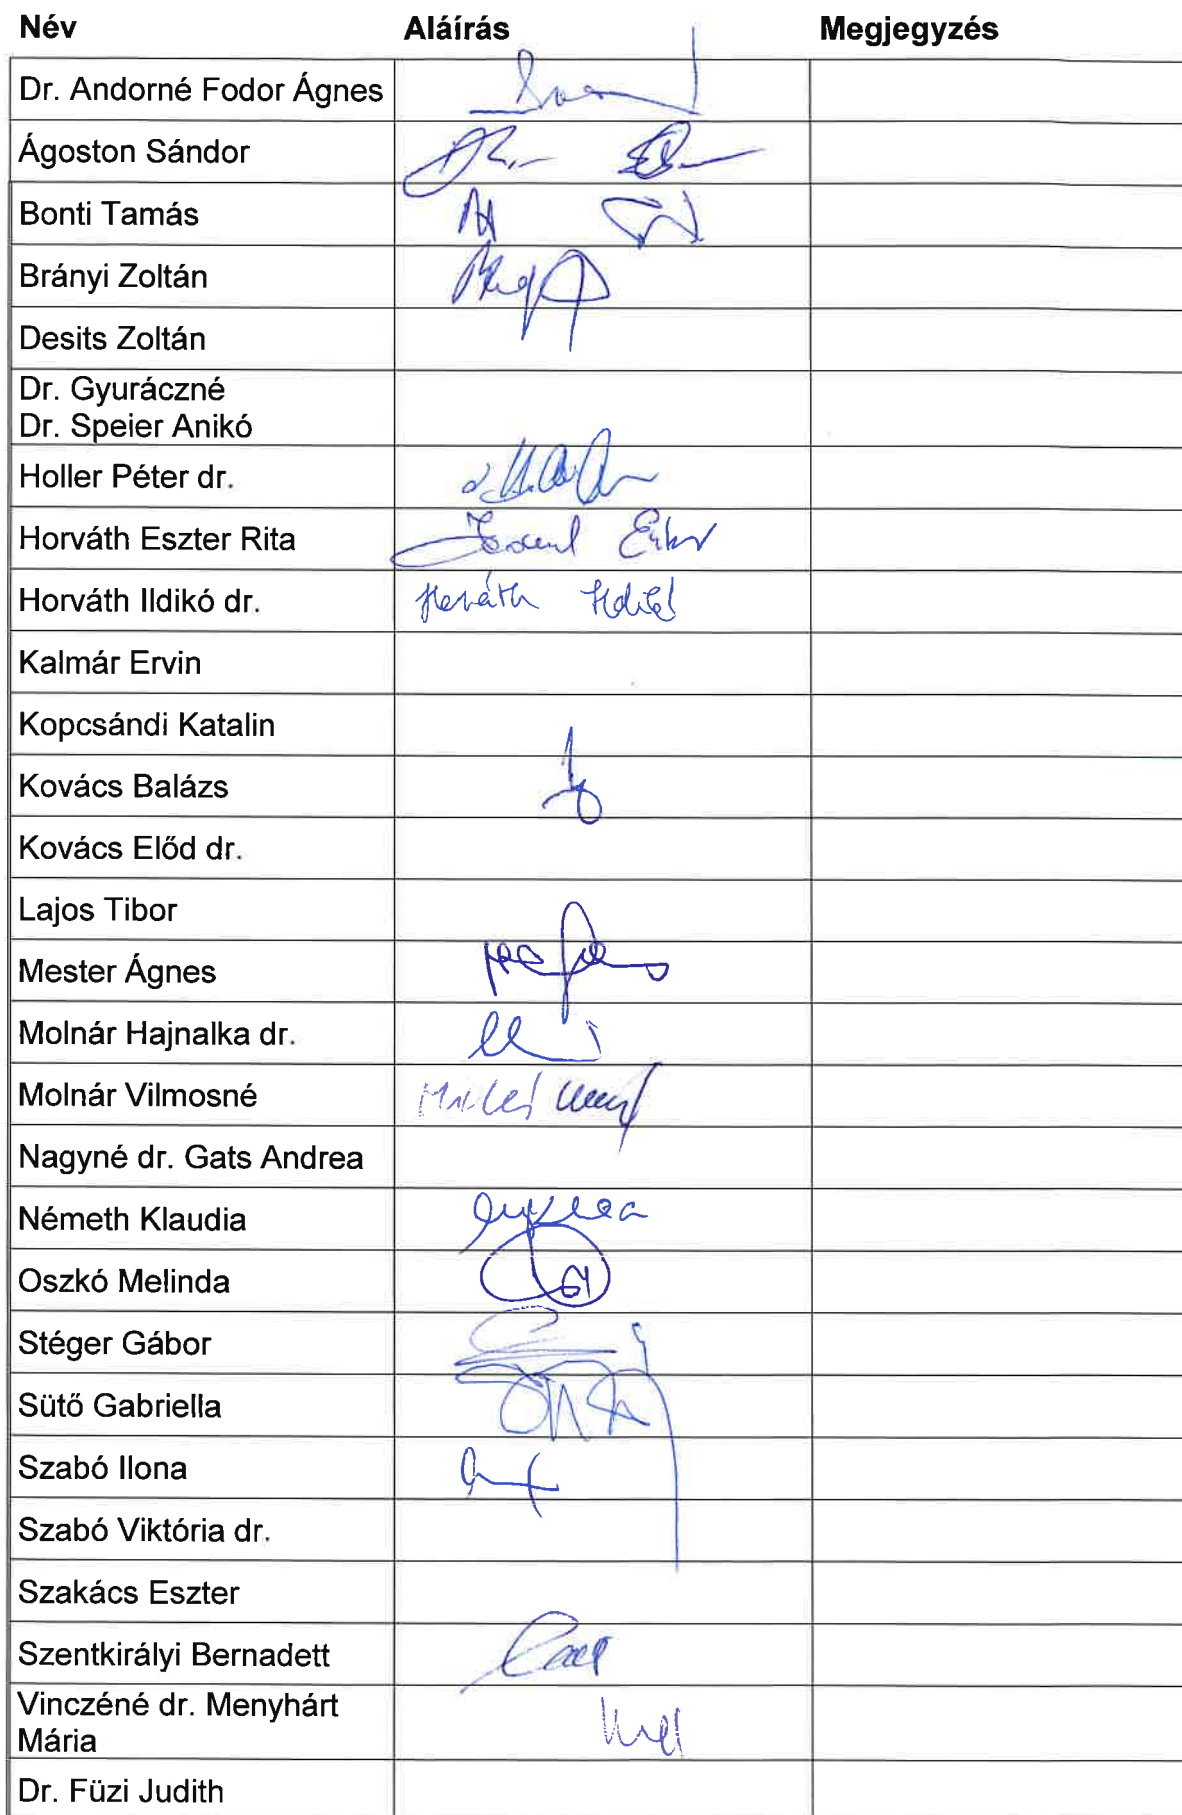 Név Aláírás Megjegyzés
Dr. Andorné Fodor Ágnes
Ágoston Sándor
Bonti Tamás
Brányi Zoltán
Desits Zoltán
Dr. Gyuráczné
Dr. Speier Anikó
Holler Péter dr.
Horváth Eszter Rita
Horváth Ildikó dr. Horváth Ildikó
Kalmár Ervin
Kopcsándi Katalin
Kovács Balázs
Kovács Előd dr.
Lajos Tibor
Mester Ágnes
Molnár Hajnalka dr.
Molnár Vilmosné
Nagyné dr. Gats Andrea
Németh Klaudia
Oszkó Melinda
Stéger Gábor
Sütő Gabriella
Szabó Ilona
Szabó Viktória dr.
Szakács Eszter
Szentkirályi Bernadett
Vinczéné dr. Menyhárt
Mária
Dr. Füzi Judith